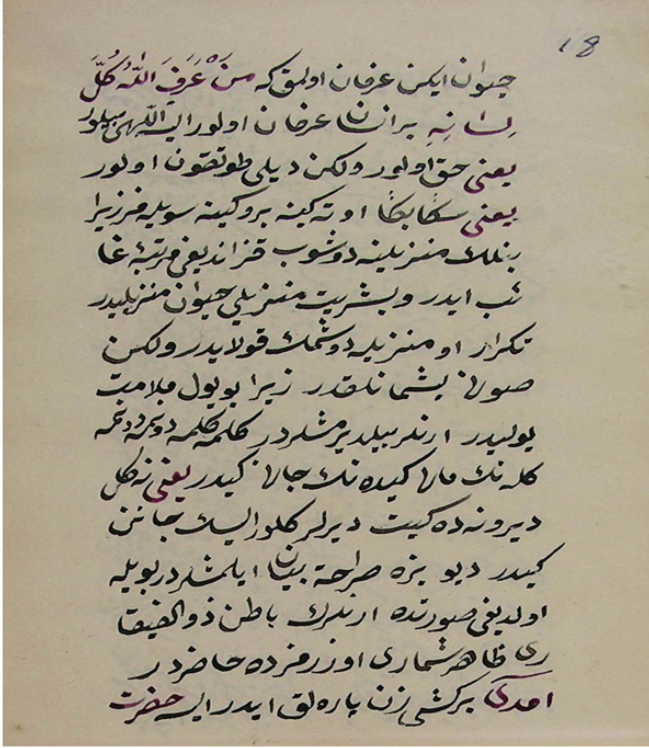 18
حیوان ایکن عرفان اولمق که مَنْ عَرَفَ اللّٰهَ كَلَّ
لِسَانِهِ بر انسان عرفان اولور ایسه اللّهی بیلور
یعنی حق اولور ولکن دیلی طوتقون اولور
یعنی سکا بکا اوته کینه بروکینه سویله مز زیرا
بنلك منزیلینه دوشوب قزاندیغی مرتبه غا
ئب ایدر و بشریت منزیلی حیوان منزیلیدر
تکرار او منزیله دوشمك قولایدر ولکن
صوڭی پشمانلقدر زیرا بو یول ملامت
یولیدر ارنلر بیلدیرمشلردر کلمه کلمه دونمه دونمه
کله نك مالی کیده نك جانی کیدر یعنی نه کل
دیرو نه ده کیت دیرلر کلور ایسك جانن
کیدر دیو بزه صراحة بیان ایلمشلردر بویله
اولدیغی صورتده ارنلرك باطن ذو الفیقا
ری ظاهر شماری اوزرمزده حاضردر
امدی بر کشی زن پاره لق ایدر ایسه حضرت